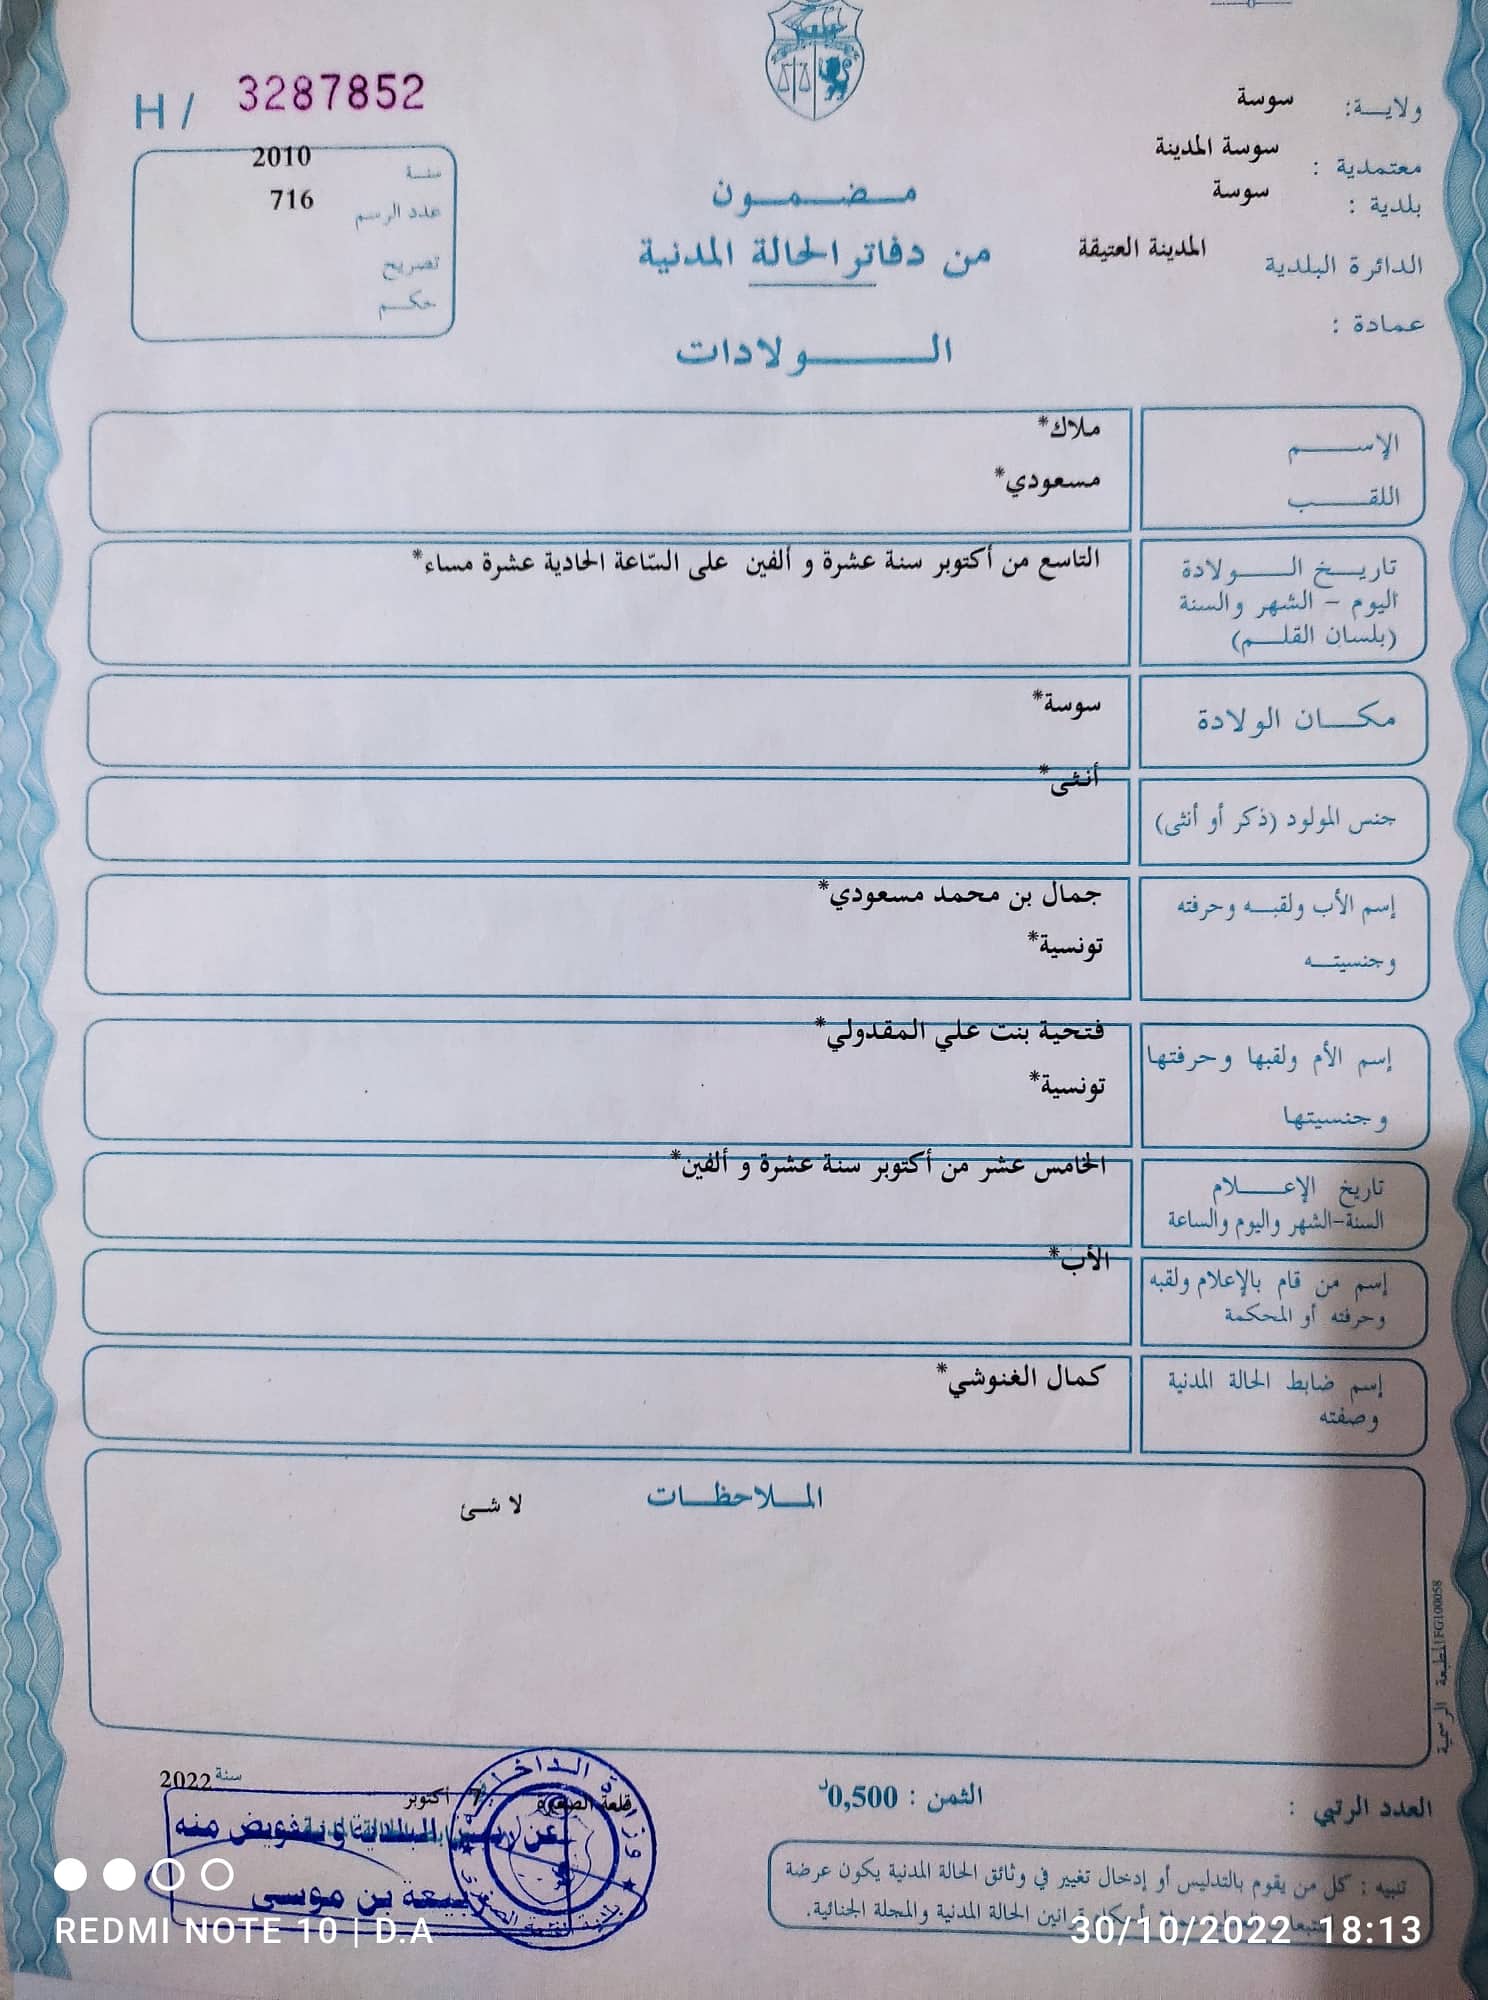 H / 3287852
سنة 2010
عدد الرسم 716
تصريح
حكم
ولاية: سوسة
معتمدية : سوسة المدينة
بلدية : سوسة
الدائرة البلدية المدينة العتيقة
عمادة :
مضمون
من دفاتر الحالة المدنية
الولادات
الإسم ملاك*
اللقب مسعودي*
تاريخ الولادة التاسع من أكتوبر سنة عشرة و ألفين على السّاعة الحادية عشرة مساء*
اليوم - الشهر والسنة
(بلسان القلم)
مكان الولادة سوسة*
جنس المولود (ذكر أو أنثى) أنثى*
إسم الأب ولقبه وحرفته جمال بن محمد مسعودي*
وجنسيته تونسية*
إسم الأم ولقبها وحرفتها فتحية بنت علي المقدولي*
وجنسيتها تونسية*
تاريخ الإعلام الخامس عشر من أكتوبر سنة عشرة و ألفين*
السنة-الشهر واليوم والساعة
إسم من قام بالإعلام ولقبه الأب*
وحرفته أو المحكمة
إسم ضابط الحالة المدنية كمال الغنوشي*
وصفته
الملاحظات لا شئ
المطبعة الرسمية FG100058
العدد الرتبي :
الثمن : 0,500د
قلعة الصغيرة أكتوبر سنة 2022
وزارة الداخلية
عن رئيس البلدية وبتفويض منه
ربيعة بن موسى
تنبيه : كل من يقوم بالتدليس أو إدخال تغيير في وثائق الحالة المدنية يكون عرضة
قوانين الحالة المدنية والمجلة الجنائية.
REDMI NOTE 10 | D.A
30/10/2022 18:13